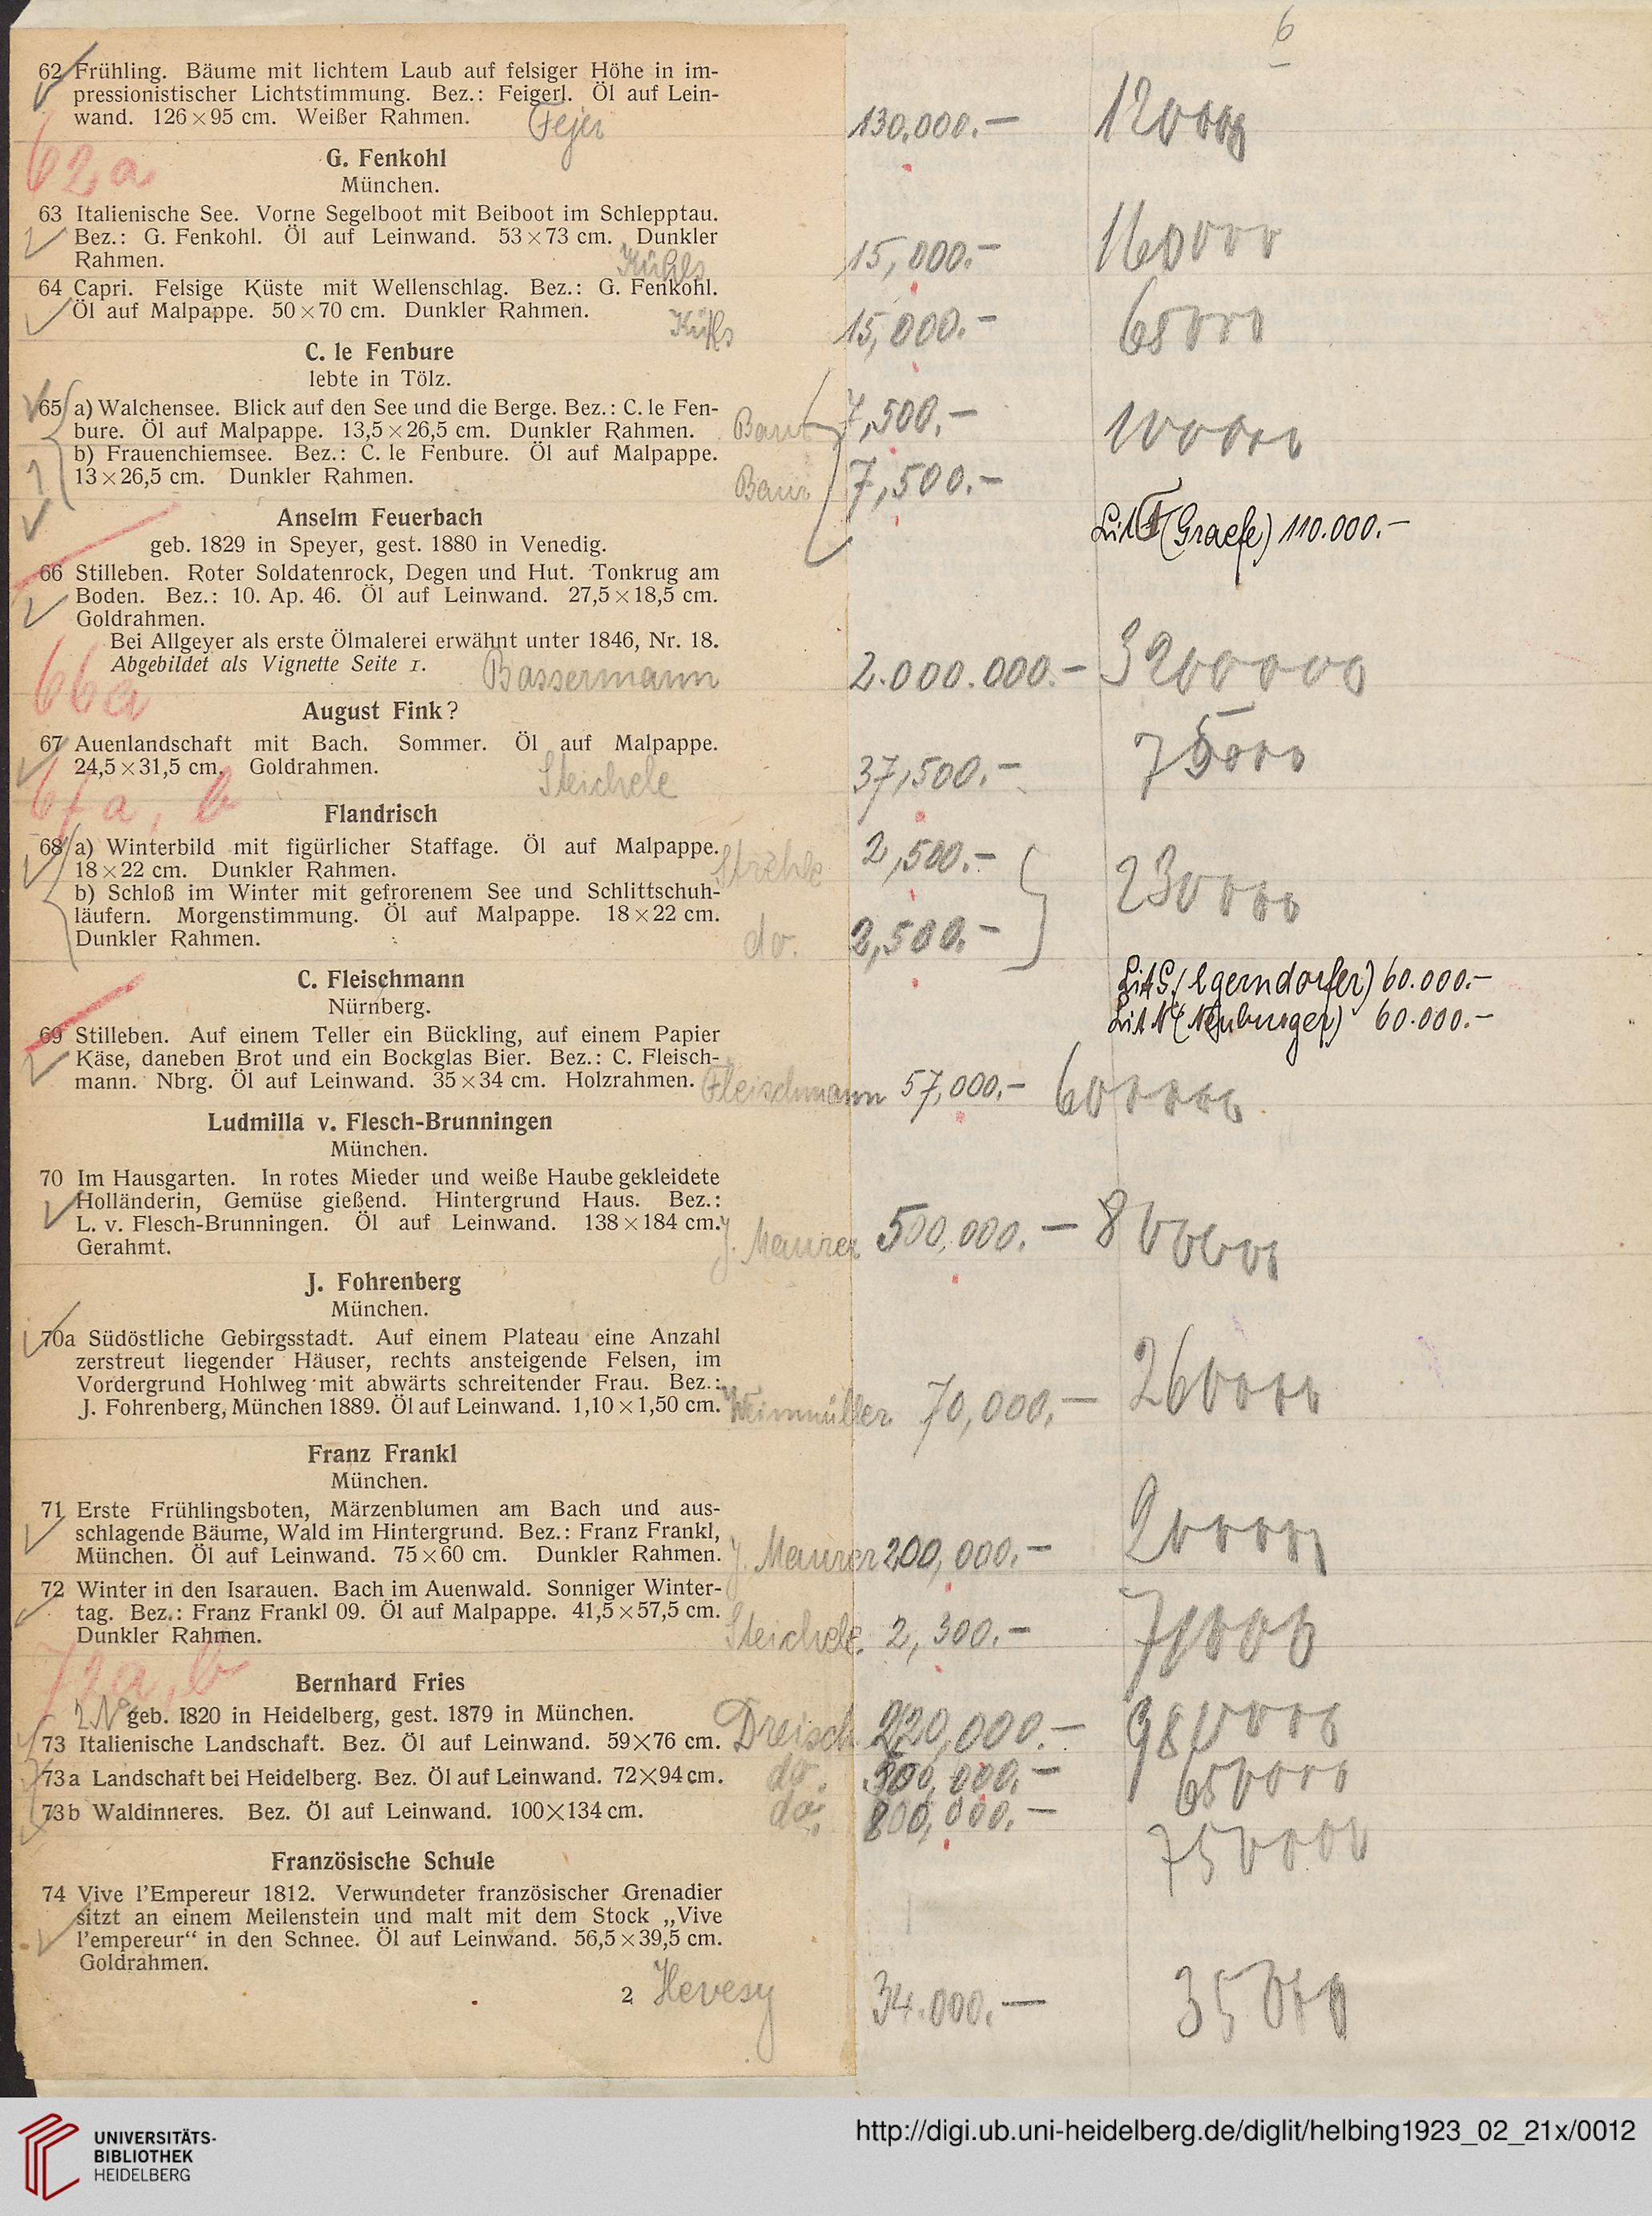 6
62 Frühling. Bäume mit lichtem Laub auf felsiger Höhe in im-
pressionistischer Lichtstimmung. Bez.: Feigerl. Öl auf Lein-
wand. 126×95 cm. Weißer Rahmen.
130.000.—
62a
G. Fenkohl
München.
63 Italienische See. Vorne Segelboot mit Beiboot im Schlepptau.
Bez.: G. Fenkohl. Öl auf Leinwand. 53×73 cm. Dunkler
Rahmen.
15,000.— 160000
64 Capri. Felsige Küste mit Wellenschlag. Bez.: G. Fenkohl.
Öl auf Malpappe. 50×70 cm. Dunkler Rahmen.
15,000.— 65000
C. le Fenbure
lebte in Tölz.
65 a) Walchensee. Blick auf den See und die Berge. Bez.: C. le Fen-
bure. Öl auf Malpappe. 13,5×26,5 cm. Dunkler Rahmen.
7,500.— 100000
b) Frauenchiemsee. Bez.: C. le Fenbure. Öl auf Malpappe.
13×26,5 cm. Dunkler Rahmen. Baur 7,500.—
Anselm Feuerbach
(Graefe) 110.000.—
geb. 1829 in Speyer, gest. 1880 in Venedig.
66 Stilleben. Roter Soldatenrock, Degen und Hut. Tonkrug am
Boden. Bez.: 10. Ap. 46. Öl auf Leinwand. 27,5×18,5 cm.
Goldrahmen.
Bei Allgeyer als erste Ölmalerei erwähnt unter 1846, Nr. 18.
Abgebildet als Vignette Seite 1. Bassermann 2.000.000.— 3200000
66a
August Fink?
67 Auenlandschaft mit Bach. Sommer. Öl auf Malpappe.
24,5×31,5 cm. Goldrahmen. Steichele 37,500.— 75000
67a, b
Flandrisch
68 a) Winterbild mit figürlicher Staffage. Öl auf Malpappe.
18×22 cm. Dunkler Rahmen. 2,500.— 230000
b) Schloß im Winter mit gefrorenem See und Schlittschuh-
läufern. Morgenstimmung. Öl auf Malpappe. 18×22 cm.
Dunkler Rahmen. do. 2,500.—
C. Fleischmann
60.000.—
Nürnberg.
60.000.—
69 Stilleben. Auf einem Teller ein Bückling, auf einem Papier
Käse, daneben Brot und ein Bockglas Bier. Bez.: C. Fleisch-
mann. Nbrg. Öl auf Leinwand. 35×34 cm. Holzrahmen. Fleischmann 57,000.—
Ludmilla v. Flesch-Brunningen
München.
70 Im Hausgarten. In rotes Mieder und weiße Haube gekleidete
Holländerin, Gemüse gießend. Hintergrund Haus. Bez.:
L. v. Flesch-Brunningen. Öl auf Leinwand. 138×184 cm.
Gerahmt. J. Maurer 500,000.—
J. Fohrenberg
München.
70a Südöstliche Gebirgsstadt. Auf einem Plateau eine Anzahl
zerstreut liegender Häuser, rechts ansteigende Felsen, im
Vordergrund Hohlweg mit abwärts schreitender Frau. Bez.:
J. Fohrenberg, München 1889. Öl auf Leinwand. 1,10×1,50 cm. Weinmüller 70,000.— 260000
Franz Frankl
München.
71 Erste Frühlingsboten, Märzenblumen am Bach und aus-
schlagende Bäume, Wald im Hintergrund. Bez.: Franz Frankl,
München. Öl auf Leinwand. 75×60 cm. Dunkler Rahmen. J. Maurer 200,000.—
72 Winter in den Isarauen. Bach im Auenwald. Sonniger Winter-
tag. Bez.: Franz Frankl 09. Öl auf Malpappe. 41,5×57,5 cm.
Dunkler Rahmen. Steichele 2,300.— 71000
72a, b
Bernhard Fries
geb. 1820 in Heidelberg, gest. 1879 in München.
73 Italienische Landschaft. Bez. Öl auf Leinwand. 59×76 cm. Dreisch 220,000.—
73a Landschaft bei Heidelberg. Bez. Öl auf Leinwand. 72×94 cm. do. 650000
73b Waldinneres. Bez. Öl auf Leinwand. 100×134 cm. do. 800,000.— 750000
Französische Schule
74 Vive l'Empereur 1812. Verwundeter französischer Grenadier
sitzt an einem Meilenstein und malt mit dem Stock „Vive
l'empereur“ in den Schnee. Öl auf Leinwand. 56,5×39,5 cm.
Goldrahmen.
2 Hevesy 34.000.— 35000
UNIVERSITÄTS-
BIBLIOTHEK
HEIDELBERG
http://digi.ub.uni-heidelberg.de/diglit/helbing1923_02_21x/0012